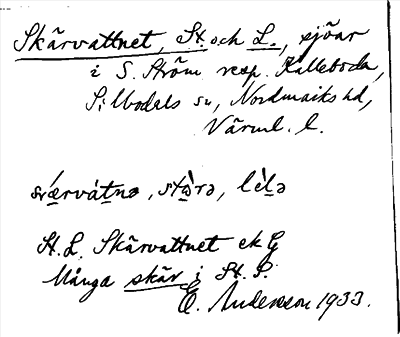 Skärvattnet, St. och L., sjöar
i S. Ström resp. Kalleboda,
Silbodals sn, Nordmarks hd,
Värml. l.
stɔ̀rə, lèlə
St. L. Skärvattnet ek G
Många skär i St. S.
E. Andersson 1933.